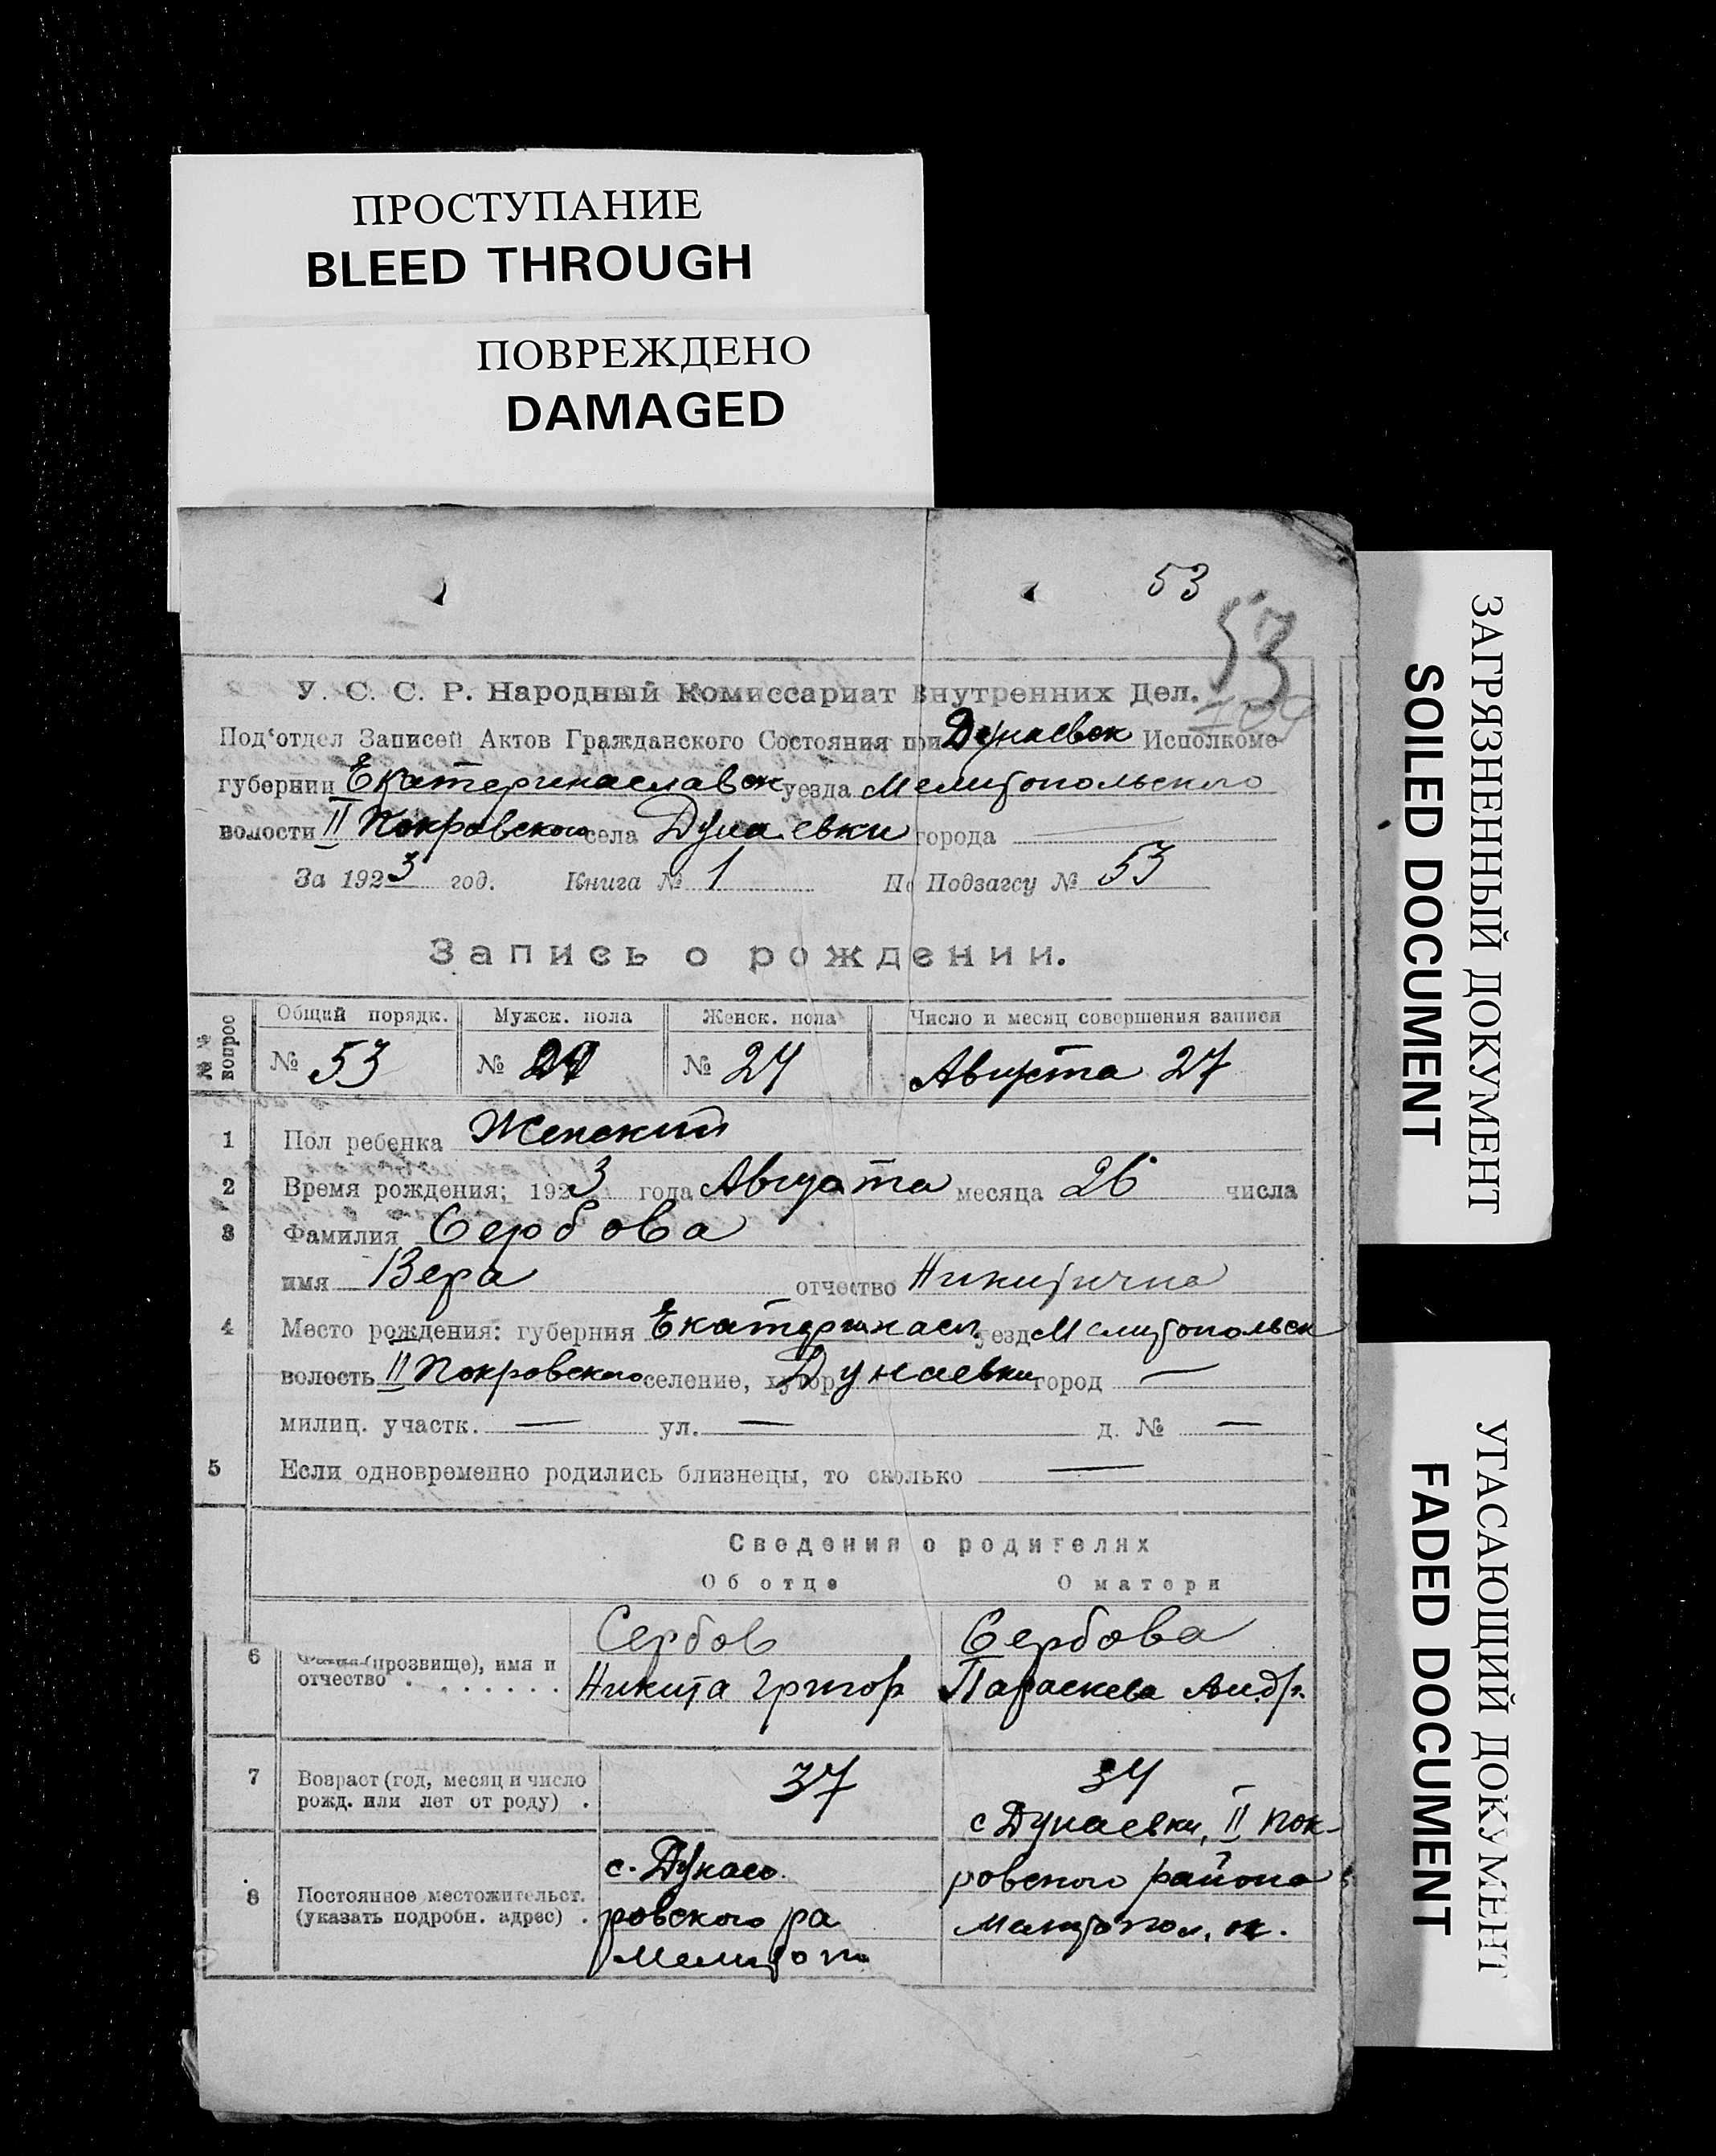 ПРОСТУПАНИЕ
BLEED THROUGH
ПОВРЕЖДЕНО
DAMAGED
53
53
У. С. С. Р. Народный Комиссариат Внутренних Дел.
Под'отдел Записей Актов Гражданского Состояния при Дунаевск Исполкоме
губернии Екатеринаславск уезда Мелитопольского
волости II Покровского села Дунаевки города
За 1923 год. Книга № 1 По Подзагсу № 53
Запись о рождении.
№№ вопрос
Общий порядк. Мужск. пола Женск. пола Число и месяц совершения записи
№ 53 № № 24 Августа 27
1 Пол ребенка Женский
2 Время рождения; 1923 года Августа месяца 26 числа
3 Фамилия Сербова
имя Вера отчество Никитична
4 Место рождения: губерния Екатеринасл. уезд Мелитопольск
волость II Покровского селение, хутор Дунаевки город —
милиц. участк. — ул. — д. № —
5 Если одновременно родились близнецы, то сколько —
Сведения о родителях
Об отце О матери
Сербов Сербова
6 (прозвище), имя и
отчество Никита Григор Параскева Андр.
7 Возраст (год, месяц и число
рожд. или лет от роду) . 37 34
8 Постоянное местожительст.
(указать подробн. адрес) .
с. Дунаев
ровского ра
Мелитоп
с Дунаевки, II Пок-
ровского района
Мелитопол. ок.
ЗАГРЯЗНЕННЫЙ ДОКУМЕНТ
SOILED DOCUMENT
УГАСАЮЩИЙ ДОКУМЕНТ
FADED DOCUMENT